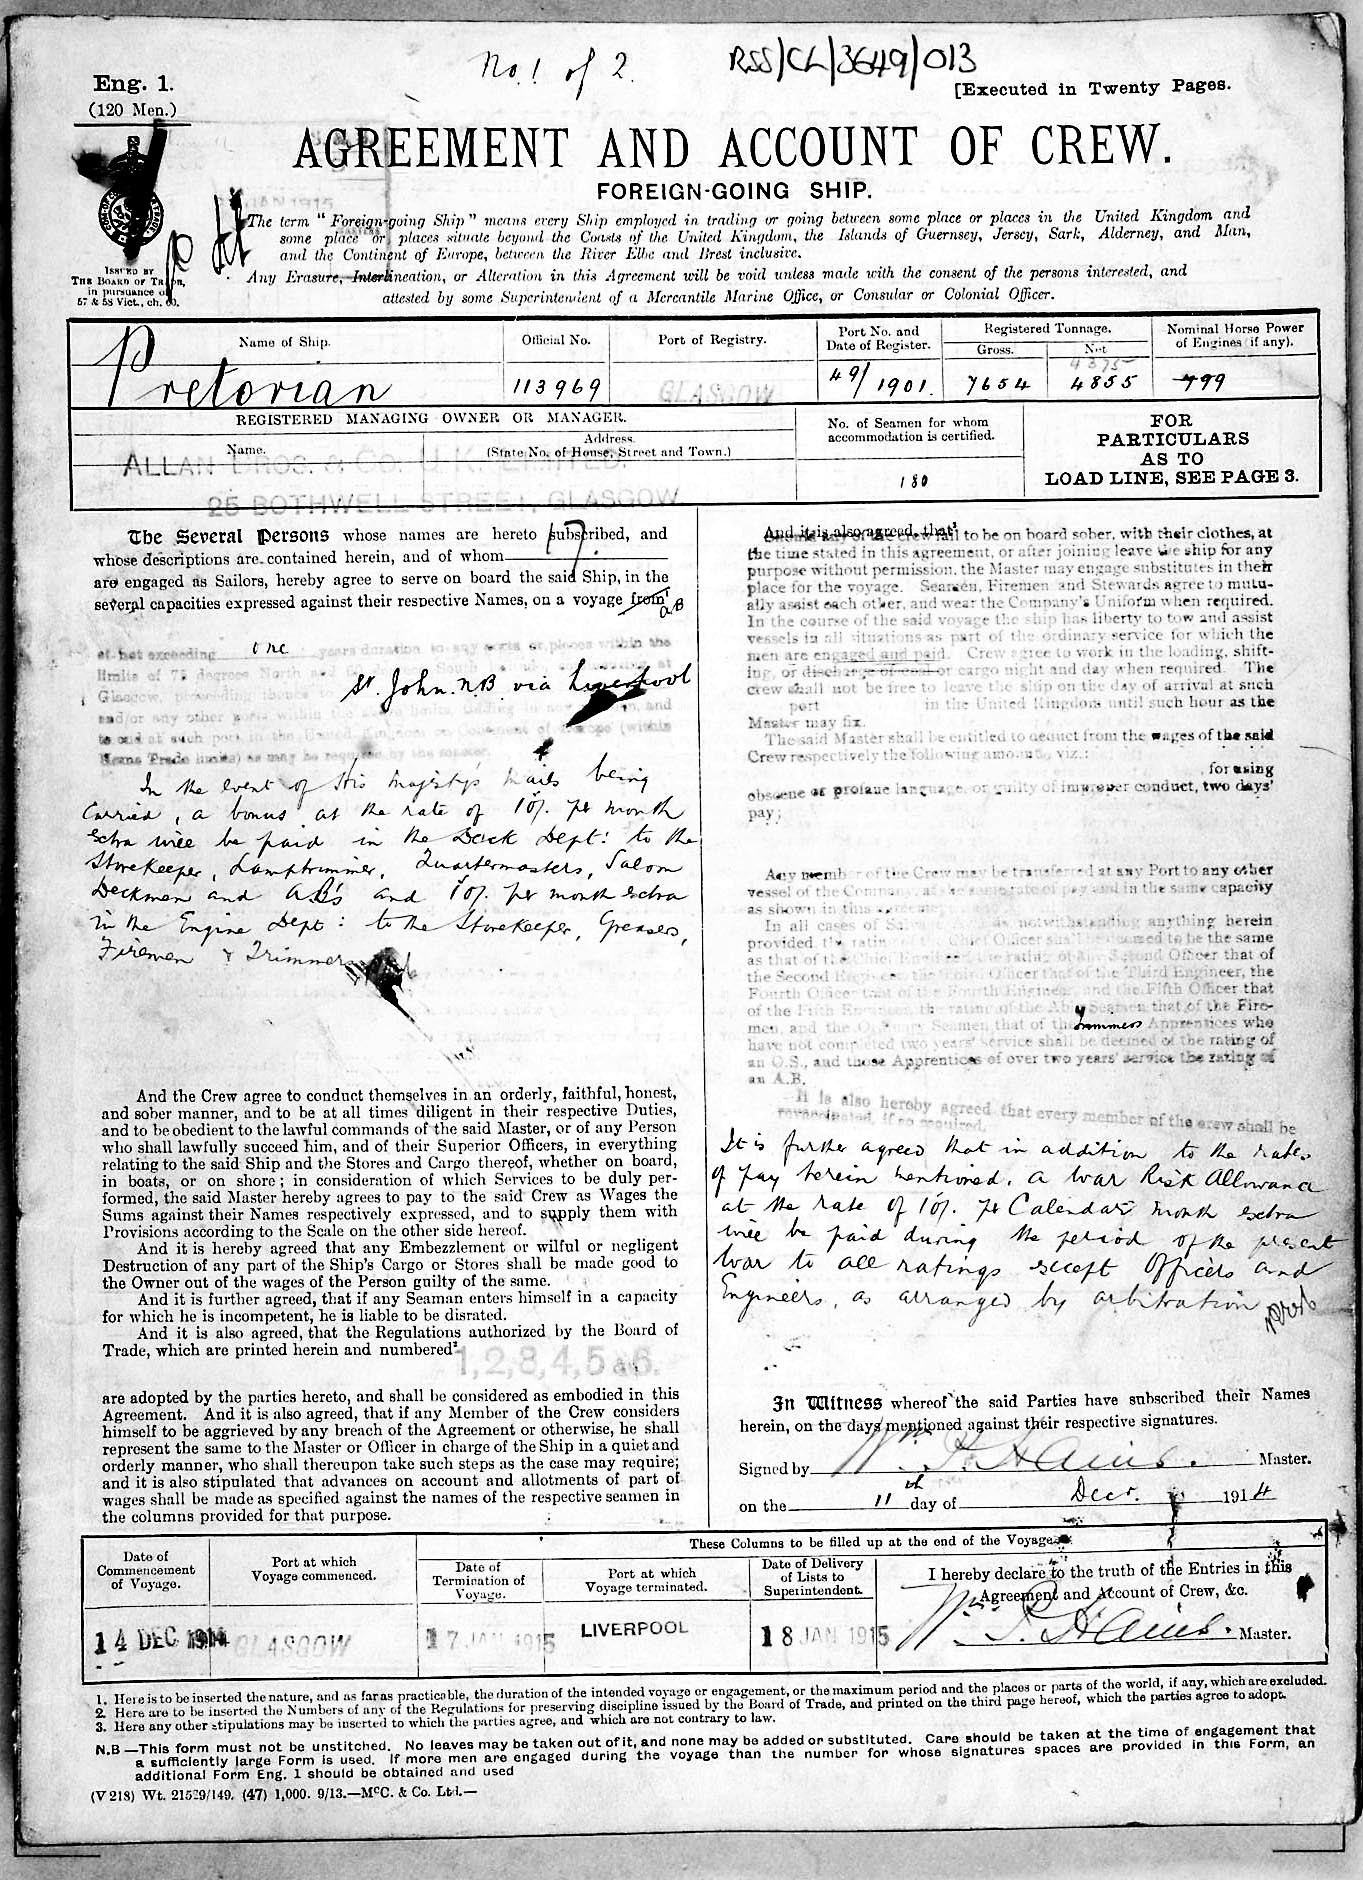 No. 1 of 2.
RSS/CL/3649/013
Eng. 1.
(120 Men.)
[Executed in Twenty Pages.
AGREEMENT AND ACCOUNT OF CREW.
FOREIGN-GOING SHIP.
The term "Foreign-going Ship" means every Ship employed in trading or going between some place or places in the United Kingdom and
some place or places situate beyond the Coasts of the United Kingdom, the Islands of Guernsey, Jersey, Sark, Alderney, and Man,
and the Continent of Europe, between the River Elbe and Brest inclusive.
Any Erasure, Interlineation, or Alteration in this Agreement will be void unless made with the consent of the persons interested, and
attested by some Superintendent of a Mercantile Marine Office, or Consular or Colonial Officer.
ISSUED BY
THE BOARD OF TRADE,
in pursuance of
57 & 58 Vict., ch. 60.
Name of Ship.
Official No.
Port of Registry.
Port No. and
Date of Register.
Registered Tonnage.
Gross.
Net
Nominal Horse Power
of Engines (if any).
Pretorian
113969
GLASGOW
49/1901.
7654
4375
4855
799
REGISTERED MANAGING OWNER OR MANAGER.
Name.
Address.
(State No. of House, Street and Town.)
ALLAN BROS. & Co. U.K. LIMITED.
25 BOTHWELL STREET, GLASGOW
No. of Seamen for whom
accommodation is certified.
180
FOR
PARTICULARS
AS TO
LOAD LINE, SEE PAGE 3.
The Several Persons whose names are hereto subscribed, and
whose descriptions are contained herein, and of whom 17.
are engaged as Sailors, hereby agree to serve on board the said Ship, in the
several capacities expressed against their respective Names, on a voyage from
aB
not exceeding one years duration to any ports or places within the
limits of 75 degrees North and 60 degrees South
Glasgow,
St. John. NB. via Liverpool
and/or any other ports within the
to end at such port in the United Kingdom or Continent of Europe (within
Home Trade limits) as may be required by the master.
In the event of His Majesty's Mails being
carried, a bonus at the rate of 10/. per month
extra will be paid in the Deck Dept: to the
Storekeeper, Lamptrimmer, Quartermasters, Saloon
Deckmen and A.B's and 10/. per month extra
in the Engine Dept: to the Storekeeper, Greasers,
Firemen & Trimmers
And the Crew agree to conduct themselves in an orderly, faithful, honest,
and sober manner, and to be at all times diligent in their respective Duties,
and to be obedient to the lawful commands of the said Master, or of any Person
who shall lawfully succeed him, and of their Superior Officers, in everything
relating to the said Ship and the Stores and Cargo thereof, whether on board,
in boats, or on shore; in consideration of which Services to be duly per-
formed, the said Master hereby agrees to pay to the said Crew as Wages the
Sums against their Names respectively expressed, and to supply them with
Provisions according to the Scale on the other side hereof.
And it is hereby agreed that any Embezzlement or wilful or negligent
Destruction of any part of the Ship's Cargo or Stores shall be made good to
the Owner out of the wages of the Person guilty of the same.
And it is further agreed, that if any Seaman enters himself in a capacity
for which he is incompetent, he is liable to be disrated.
And it is also agreed, that the Regulations authorized by the Board of
Trade, which are printed herein and numbered² 1, 2, 3, 4, 5 & 6.
are adopted by the parties hereto, and shall be considered as embodied in this
Agreement. And it is also agreed, that if any Member of the Crew considers
himself to be aggrieved by any breach of the Agreement or otherwise, he shall
represent the same to the Master or Officer in charge of the Ship in a quiet and
orderly manner, who shall thereupon take such steps as the case may require;
and it is also stipulated that advances on account and allotments of part of
wages shall be made as specified against the names of the respective seamen in
the columns provided for that purpose.
And it is also agreed, that³
crew fail to be on board sober, with their clothes, at
the time stated in this agreement, or after joining leave the ship for any
purpose without permission, the Master may engage substitutes in their
place for the voyage. Seamen, Firemen and Stewards agree to mutu-
ally assist each other, and wear the Company's Uniform when required.
In the course of the said voyage the ship has liberty to tow and assist
vessels in all situations as part of the ordinary service for which the
men are engaged and paid. Crew agree to work in the loading, shift-
ing, or discharge of coal or cargo night and day when required. The
crew shall not be free to leave the ship on the day of arrival at such
port in the United Kingdom until such hour as the
Master may fix.
The said Master shall be entitled to deduct from the wages of the said
Crew respectively the following amounts, viz.:
for using
obscene or profane language, or guilty of improper conduct, two days'
pay;
Any member of the Crew may be transferred at any Port to any other
vessel of the Company, at the same rate of pay and in the same capacity
as shown in this agreement
In all cases of Salvage, notwithstanding anything herein
provided, the rating of the Chief Officer shall be deemed to be the same
as that of the Chief Engineer, the rating of the Second Officer that of
the Second Engineer, the Third Officer that of the Third Engineer, the
Fourth Officer that of the Fourth Engineer, and the Fifth Officer that
of the Fifth Engineer, the rating of the Able Seamen that of the Fire-
men, and the Ordinary Seamen that of the Trimmers Apprentices who
have not completed two years' service shall be deemed of the rating of
an O.S., and those Apprentices of over two years' service the rating of
an A.B.
It is also hereby agreed that every member of the crew shall be
revaccinated, if so required.
It is further agreed that in addition to the rates
of pay herein mentioned, a War Risk Allowance
at the rate of 10/. per Calendar month extra
will be paid during the period of the present
War to all ratings except Officers and
Engineers, as arranged by arbitration
In Witness whereof the said Parties have subscribed their Names
herein, on the days mentioned against their respective signatures.
Signed by Wm. P. Hains. Master.
on the 11th day of Decr. 1914
These Columns to be filled up at the end of the Voyage.
Date of
Commencement
of Voyage.
Port at which
Voyage commenced.
Date of
Termination of
Voyage.
Port at which
Voyage terminated.
Date of Delivery
of Lists to
Superintendent.
I hereby declare to the truth of the Entries in this
Agreement and Account of Crew, &c.
14 DEC 1914
GLASGOW
17 JAN 1915
LIVERPOOL
18 JAN 1915
Wm. P. Hains. Master.
1. Here is to be inserted the nature, and as far as practicable, the duration of the intended voyage or engagement, or the maximum period and the places or parts of the world, if any, which are excluded.
2. Here are to be inserted the Numbers of any of the Regulations for preserving discipline issued by the Board of Trade, and printed on the third page hereof, which the parties agree to adopt.
3. Here any other stipulations may be inserted to which the parties agree, and which are not contrary to law.
N.B—This form must not be unstitched. No leaves may be taken out of it, and none may be added or substituted. Care should be taken at the time of engagement that
a sufficiently large Form is used. If more men are engaged during the voyage than the number for whose signatures spaces are provided in this Form, an
additional Form Eng. 1 should be obtained and used
(V 218) Wt. 21529/149. (47) 1,000. 9/13.—McC. & Co. Ltd.—